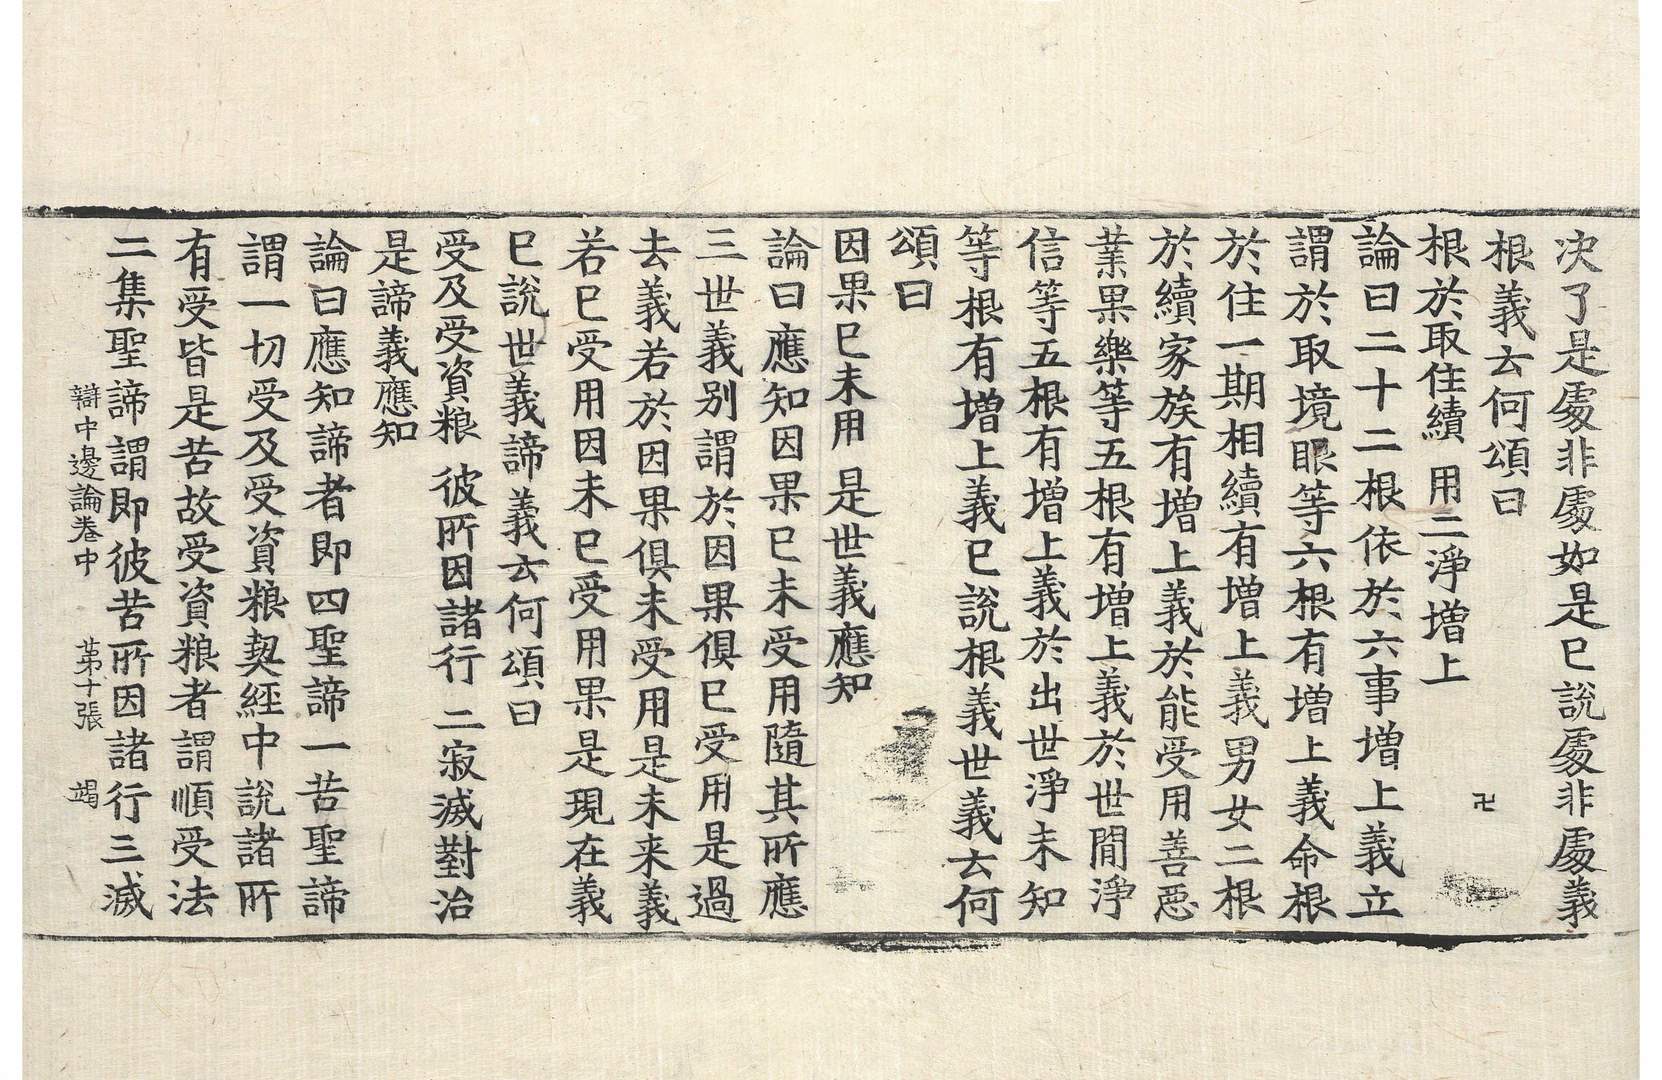 決了是處非處如是已說處非處義
根義云何頌曰
根於取住續　用二淨增上
論曰二十二根依於六事增上義立
謂於取境眼等六根有增上義命根
於住一期相續有增上義男女二根
於續家族有增上義於能受用善惡
業果樂等五根有增上義於世閒淨
信等五根有增上義於出世淨未知
等根有增上義已說根義世義云何
頌曰
因果已未用　是世義應知
論曰應知因果已未受用隨其所應
三世義別謂於因果俱已受用是過
去義若於因果俱未受用是未来義
若已受用因未已受用果是現在義
已說世義諦義云何頌曰
受及受資粮　彼所因諸行　二寂滅對治
是諦義應知
論曰應知諦者即四聖諦一苦聖諦
謂一切受及受資粮契經中說諸所
有受皆是苦故受資粮者謂順受法
二集聖諦謂即彼苦所因諸行三滅
辯中邊論卷中　第十張　竭
卍